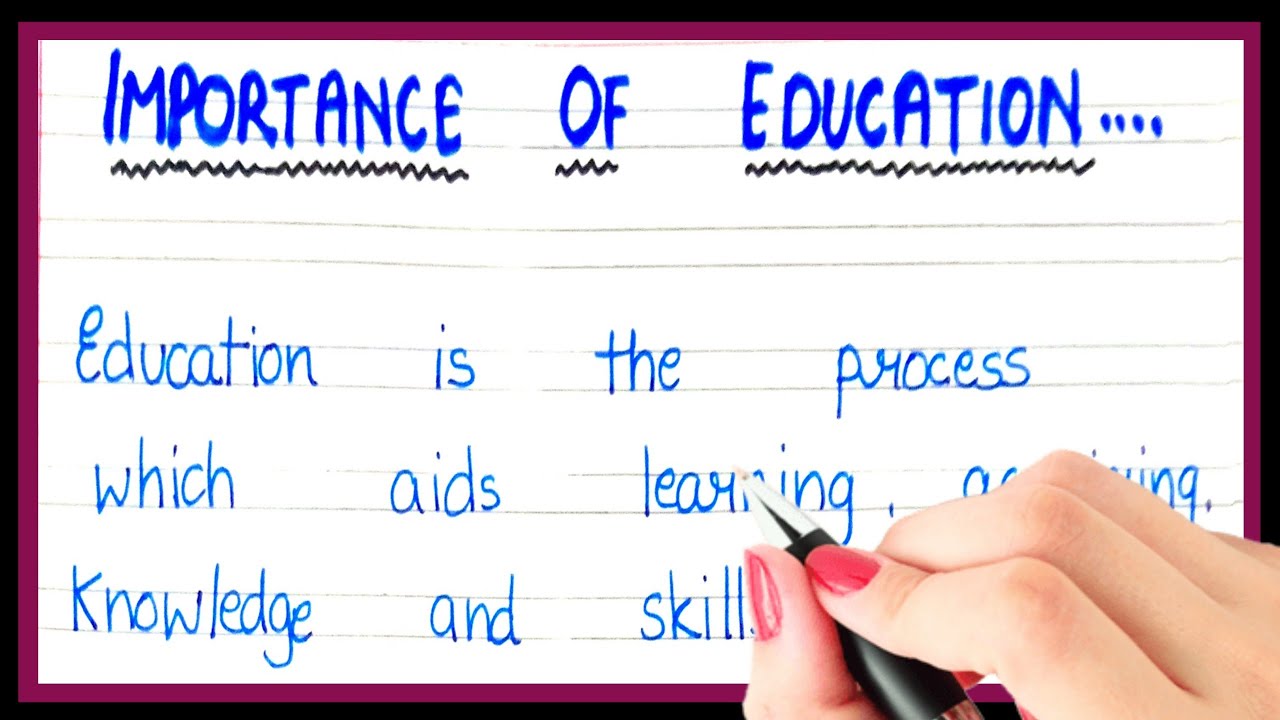 IMPORTANCE OF EDUCATION....
Education is the process
which aids learning,
Knowledge and